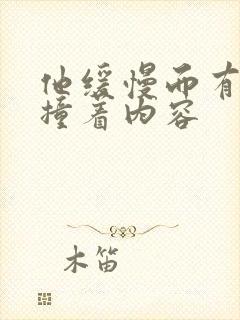 他缓慢而有
撞着内容
木笛